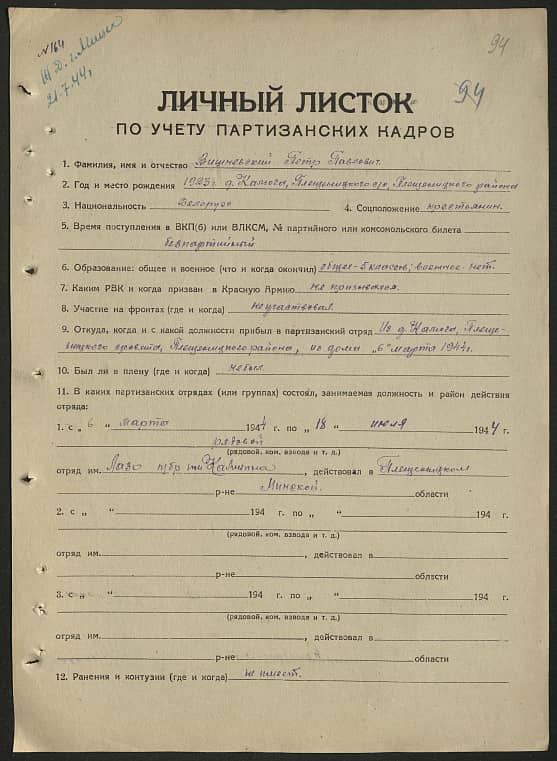 N 164
21.7.44 г.
94
94
ЛИЧНЫЙ ЛИСТОК
ПО УЧЕТУ ПАРТИЗАНСКИХ КАДРОВ
1. Фамилия, имя и отчество Вишневский Петр Павлович.
2. Год и место рождения 1923 г. д. Калюга, Плещеницкого с/с, Плещеницкого района
3. Национальность Белорус 4. Соцположение крестьянин.
5. Время поступления в ВКП(б) или ВЛКСМ, № партийного или комсомольского билета
беспартийный
6. Образование: общее и военное (что и когда окончил) общее-5 классов; военное-нет.
7. Каким РВК и когда призван в Красную Армию не призывался.
8. Участие на фронтах (где и когда) не участвовал.
9. Откуда, когда и с какой должности прибыл в партизанский отряд Из д. Калюга, Плеще-
ницкого с/совета, Плещеницкого района, из дома „6" марта 1944 г.
10. Был ли в плену (где и когда) не был.
11. В каких партизанских отрядах (или группах) состоял, занимаемая должность и район действия
отряда:
1. с „ 6 " марта 1944 г. по „ 18 " июля 1944 г.
рядовой
(рядовой, ком. взвода и т. д.)
отряд им. Лазо п/бр им Калинина, действовал в Плещеницком
р-не Минской. области
2. с „ " 194 г. по „ " 194 г.
(рядовой, ком. взвода и т. д.)
отряд им. , действовал в
р-не области
3. с „ " 194 г. по „ " 194 г.
(рядовой, ком. взвода и т. д.)
отряд им. , действовал в
р-не области
12. Ранения и контузии (где и когда) не имеет.